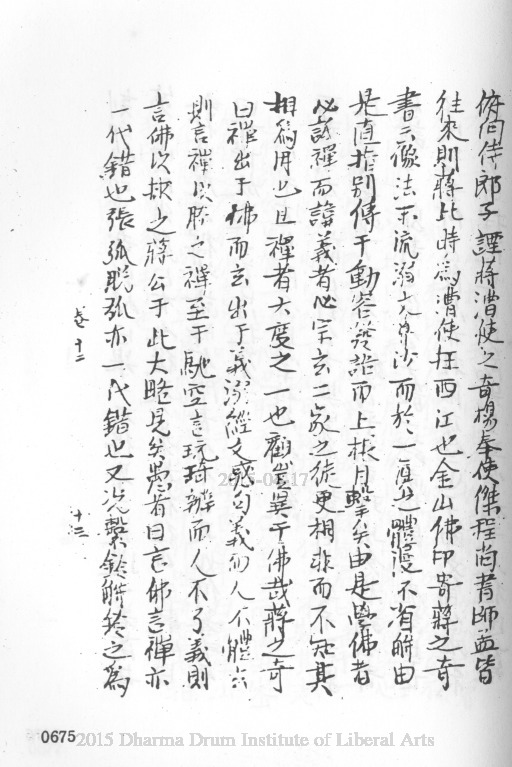 俯白侍郎子譚蔣漕使之奇楊奉使傑程尚書師孟皆
往來則蔣比時為漕使在西江也金山佛印寄蔣之奇
書云像法末流溺文算沙而於一真之體漫不省解由
是直指別傳于動容發語而上根月擊矣由是學佛者
必訾禪而諱義者必宗玄二家之徒更相非而不知其
相為用也且禪者六度之一也顧豈異于佛哉蔣之奇
曰禪出于佛而玄出于義溺經文惑句義而人不體玄
則言禪以勝之禪至于馳空言玩琦辯而人不了義則
言佛以救之蔣公于此大略見矣愚者曰言佛言禪亦
一代錯也張弧脫弧亦一代錯也又況繫鈴解鈴之為
卷十二
十三
0675
2015 Dharma Drum Institute of Liberal Arts